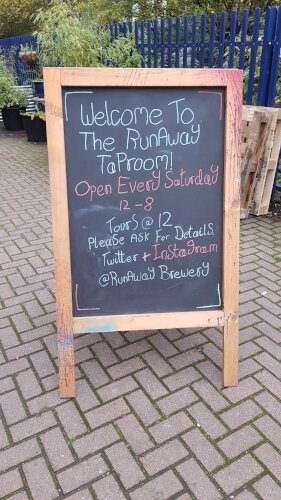 Welcome To
The RunAway
TaProom!
Open Every Saturday
12-8
Tours @ 12
Please Ask For Details.
Twitter + Instagram
@RunAway Brewery